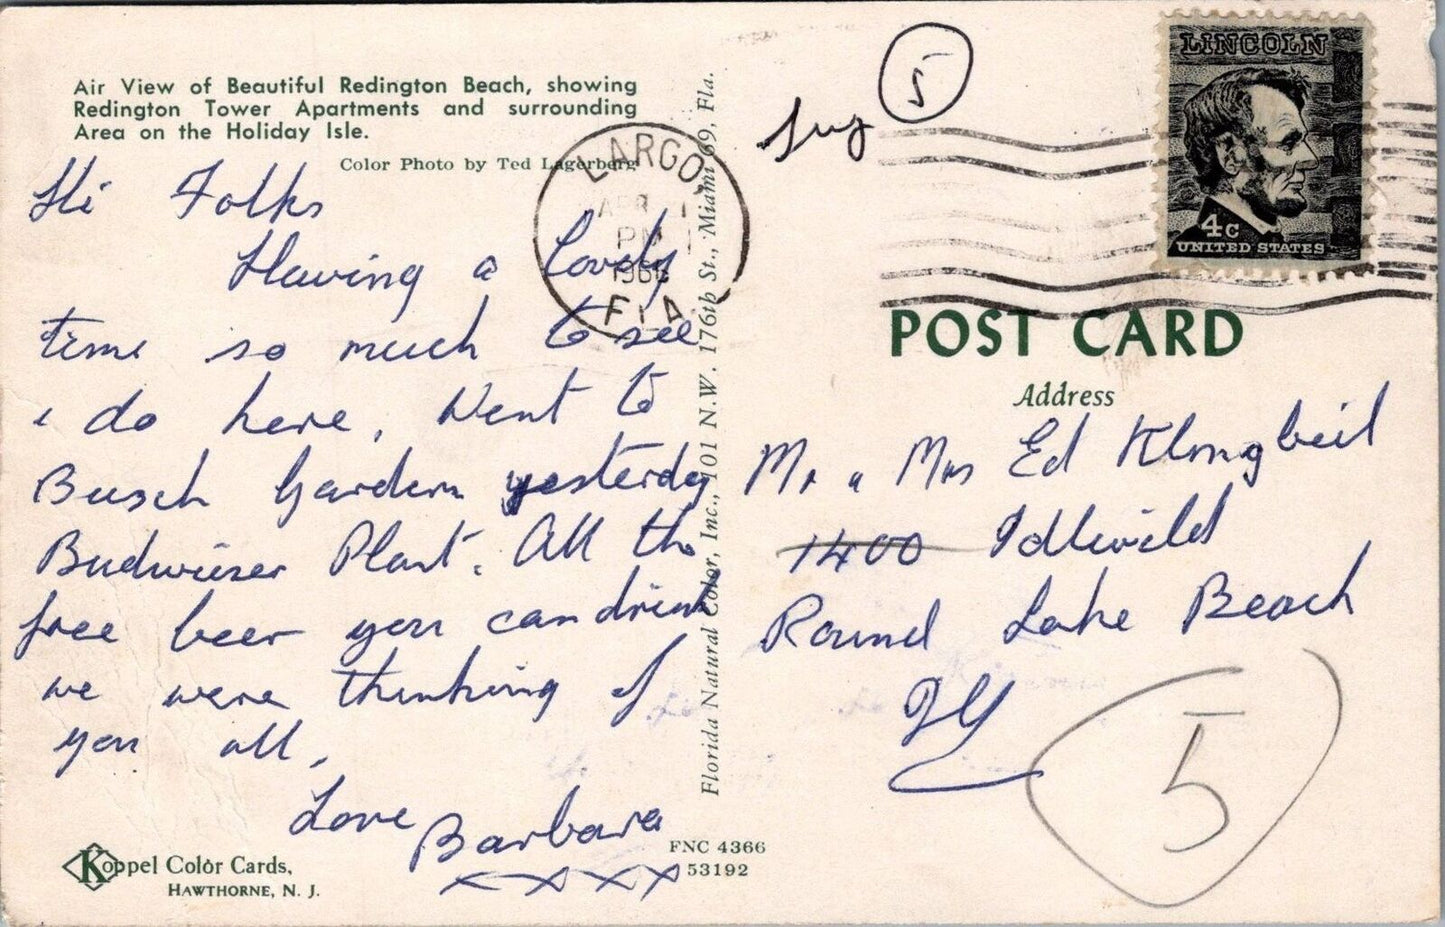 Air View of Beautiful Redington Beach, showing
Redington Tower Apartments and surrounding
Area on the Holiday Isle.
Color Photo by Ted Lagerberg
Hi Folks
Having a Lovely
time so much to see
& do here, Went to
Busch Gardens yesterday
Budwieser Plant. All the
free beer you can drink
we were thinking of
you all,
Love Barbara
xxxx
Koppel Color Cards,
HAWTHORNE, N. J.
FNC 4366
53192
Florida Natural Color, Inc., 101 N.W. 176th St., Miami 69, Fla.
LARGO,
APR 1
PM
FLA
5
LINCOLN
4c
UNITED STATES
POST CARD
Address
Mr & Mrs Ed Klongbeil
1400 Idlewild
Round Lake Beach
Ill
5